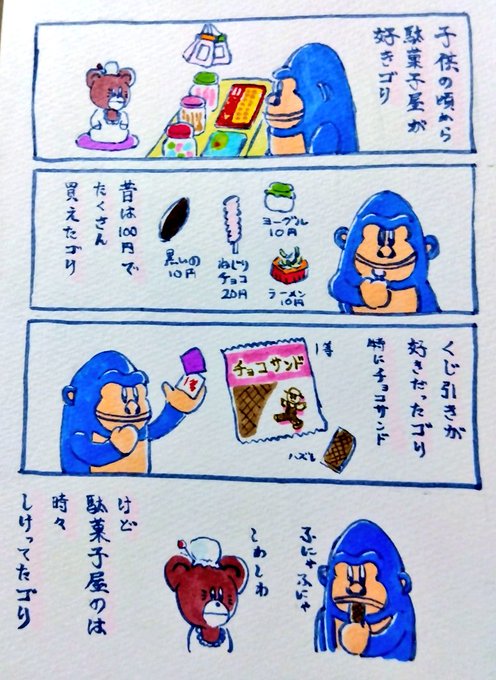 子供の頃から
駄菓子屋が
好きゴリ
ヨーグル
10円
ラーメン
10円
ねじり
チョコ
20円
黒いの
10円
昔は100円で
たくさん
買えたゴリ
くじ引きが
好きだったゴリ
特にチョコサンド
1等
チョコサンド
ハズレ
ふにゃふにゃ
しわしわ
けど
駄菓子屋のは
時々
しけってたゴリ